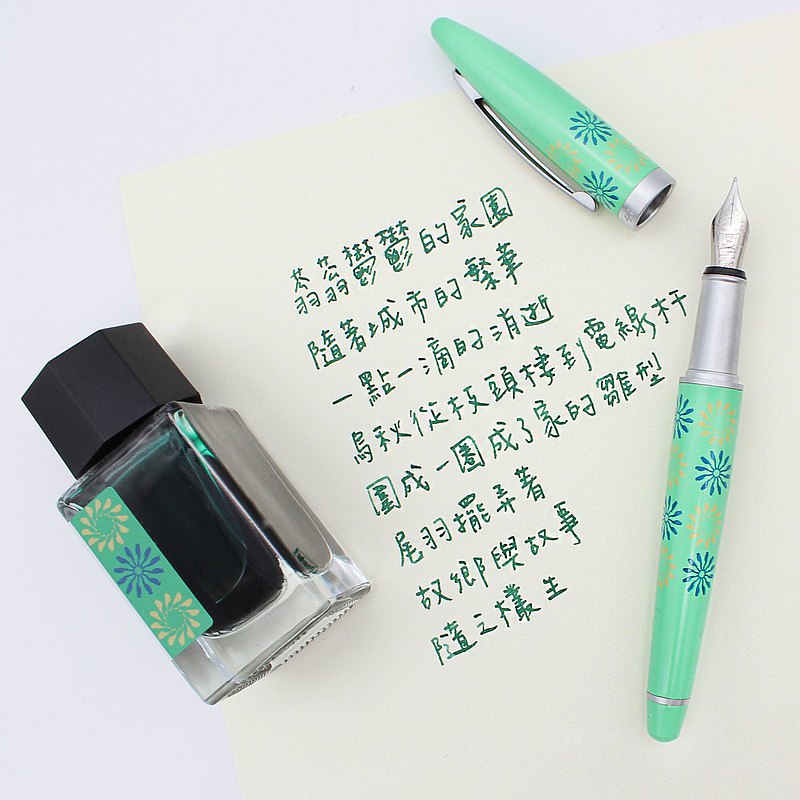 蓊蓊鬱鬱的家園
隨著城市的繁華
一點一滴的消逝
烏秋從枝頭棲到電線杆
圍成一圈成了家的雛型
尾羽擺弄著
故鄉與故事
隨之欉生